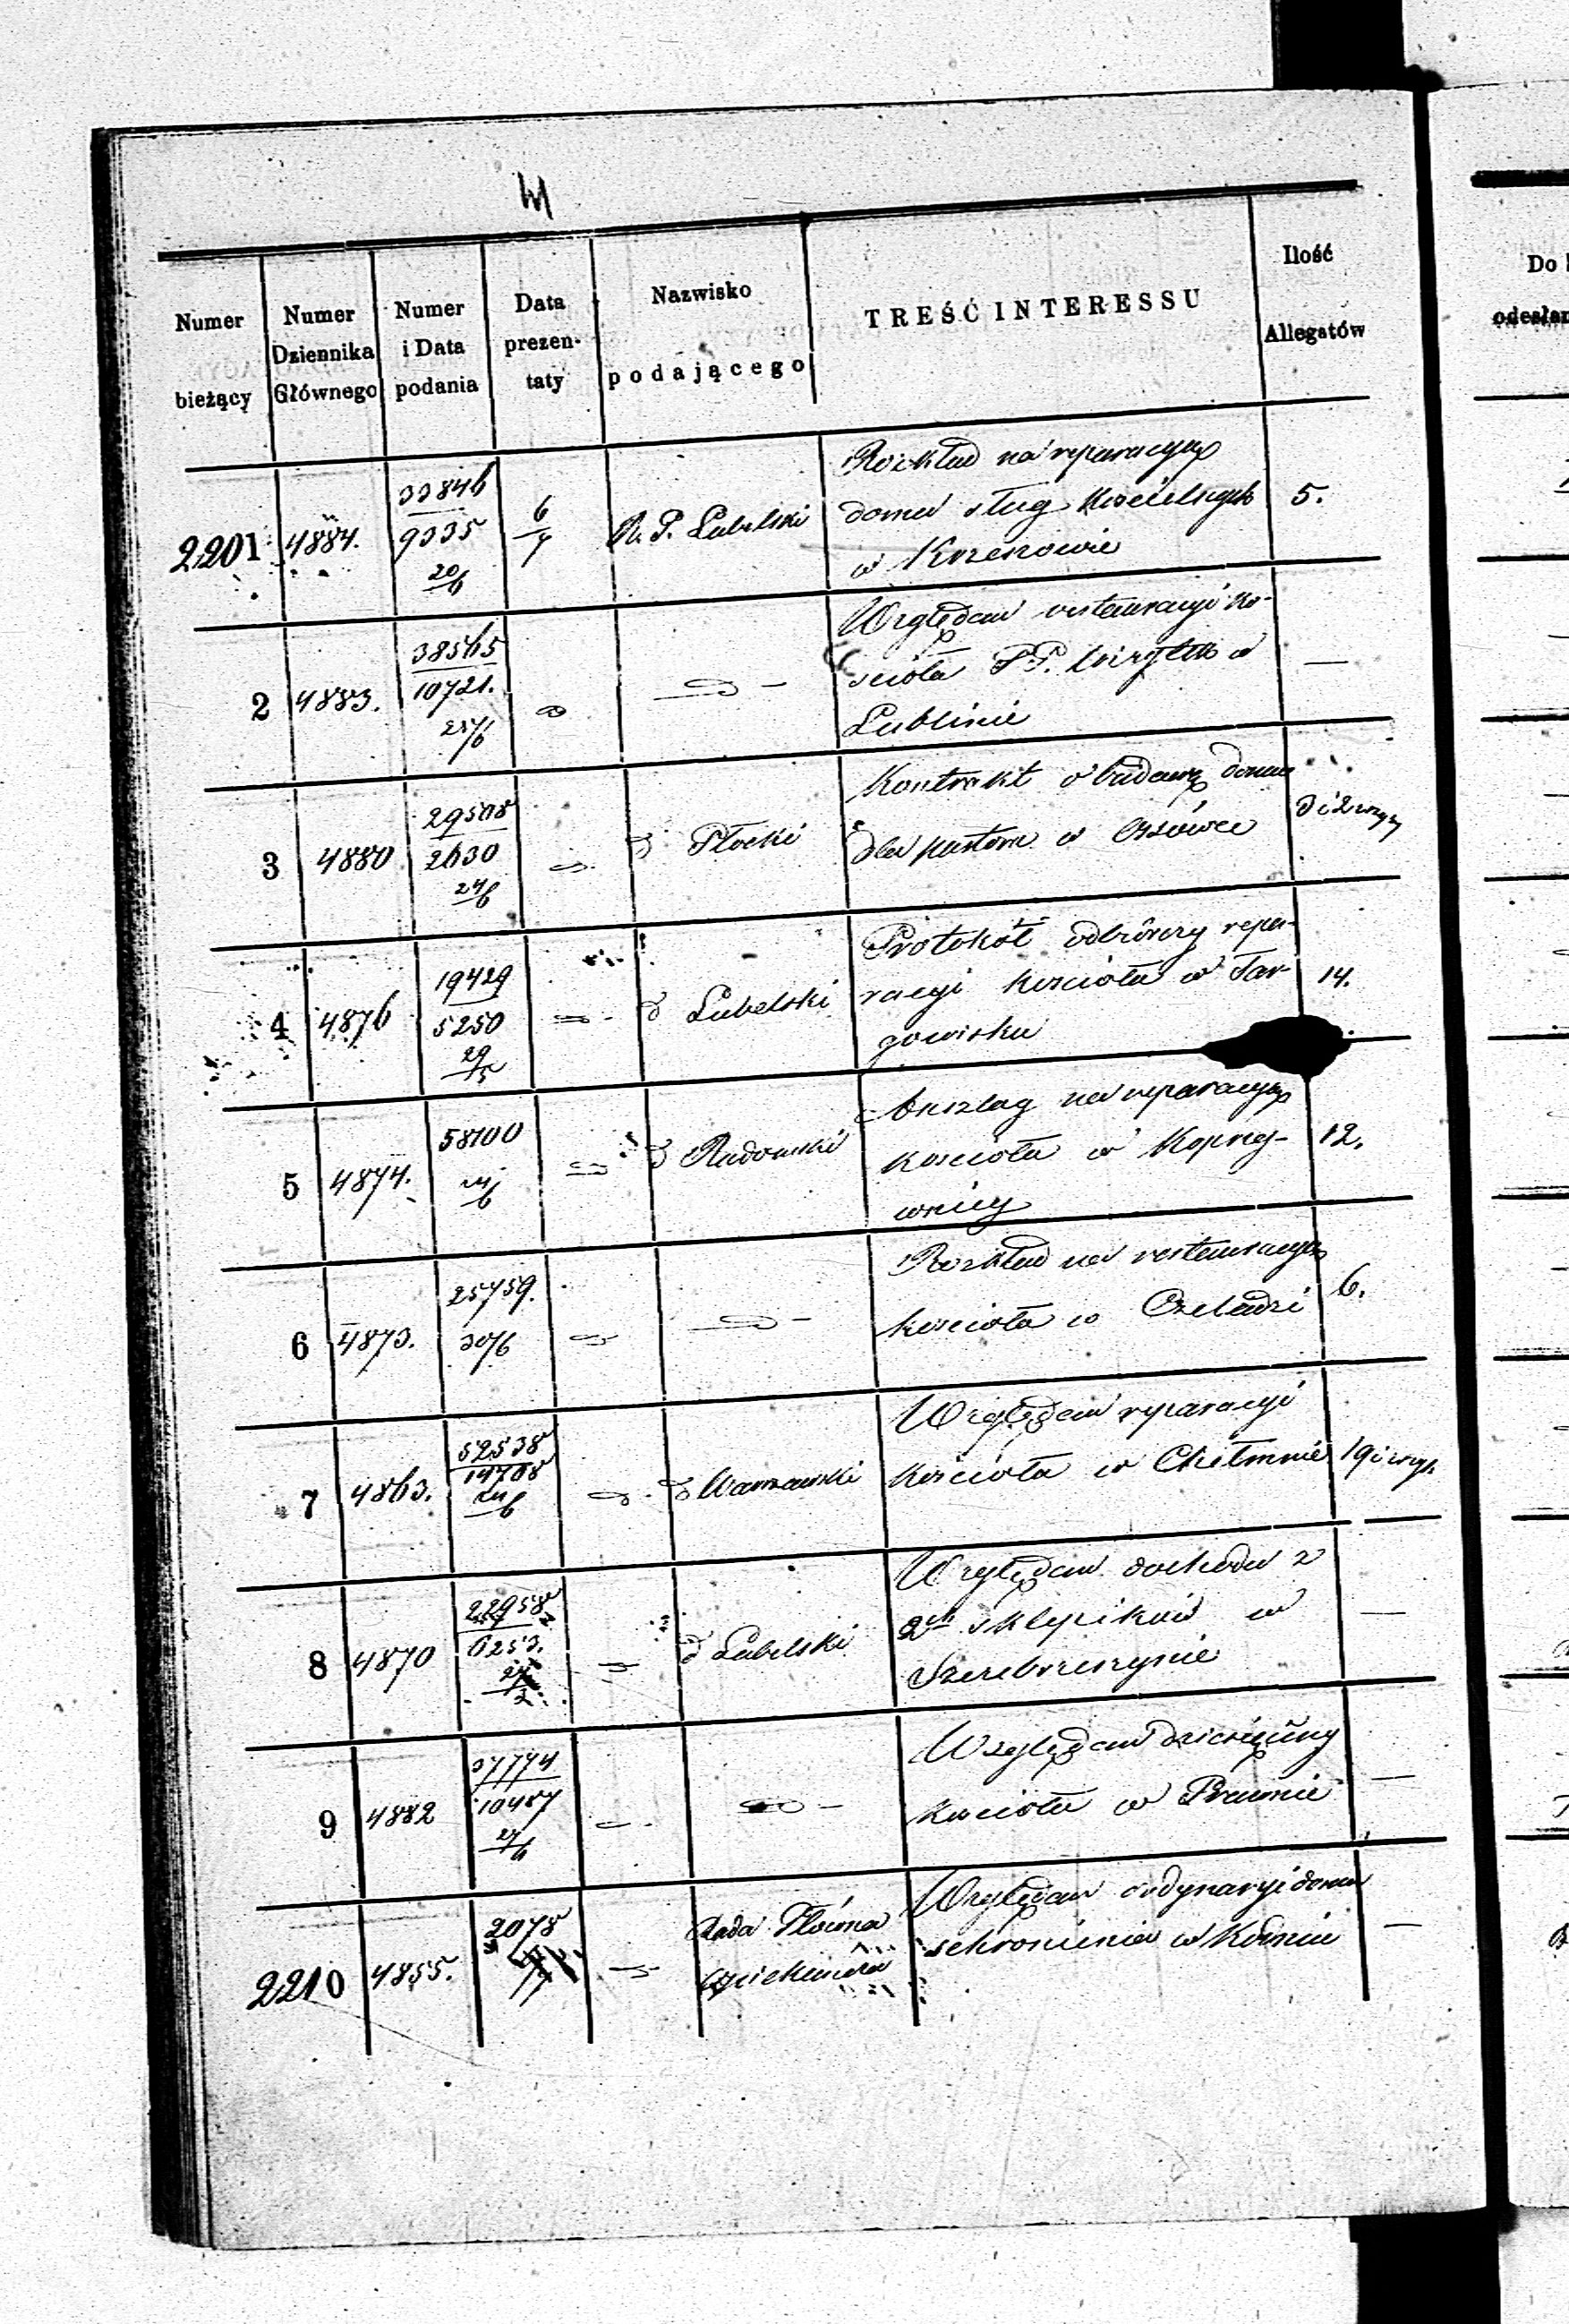 Numer bieżący
Numer Dziennika Głównego
Numer i Data podania
Data prezen- taty
Nazwisko podającego
TREŚĆ INTERESSU
Ilość Allegatów
Do
odesłan
2201 4884. 33846 9335 20/6 6/7 R. P. Lubelski
Rozkład na reparacyą
domu sług kościelnych
w
5.
2 4883. 38565 10721.
Względem restauracyi ko-
ścioła PP. Wizytek w
Lublinie
—
3 4880 29508 2630 24/6 Płocki
Kontrakt o budowę domu
dla pastora w Osówce
4 4876 19429 5250 29/5 d Lubelski
Protokół odbiorczy repa-
racyi kościoła w Tar-
gowisku
14.
5 4874. 58100 d Radomski
Anszlag na reparacyą
kościoła w Koprzy-
wnicy
12.
6 4873. 25759. 30/6
Rozkład na restauracyą
kościoła w Czeladzi
6.
7 4863. 52538 14708 d Warszawski
Względem reparacyi
kościoła w Chełmnie
8 4870 22958 6253. d Lubelski
Względem dochodu z
2ch sklepików w
Szczebrzeszynie
—
9 4882 37774 10487 27/6
Względem dziesięciny
kościoła w
—
2210 4855. 2078 Rada Główna
Opiekuńcza
Względem ordynaryi domu
schronienia w Koninie
—